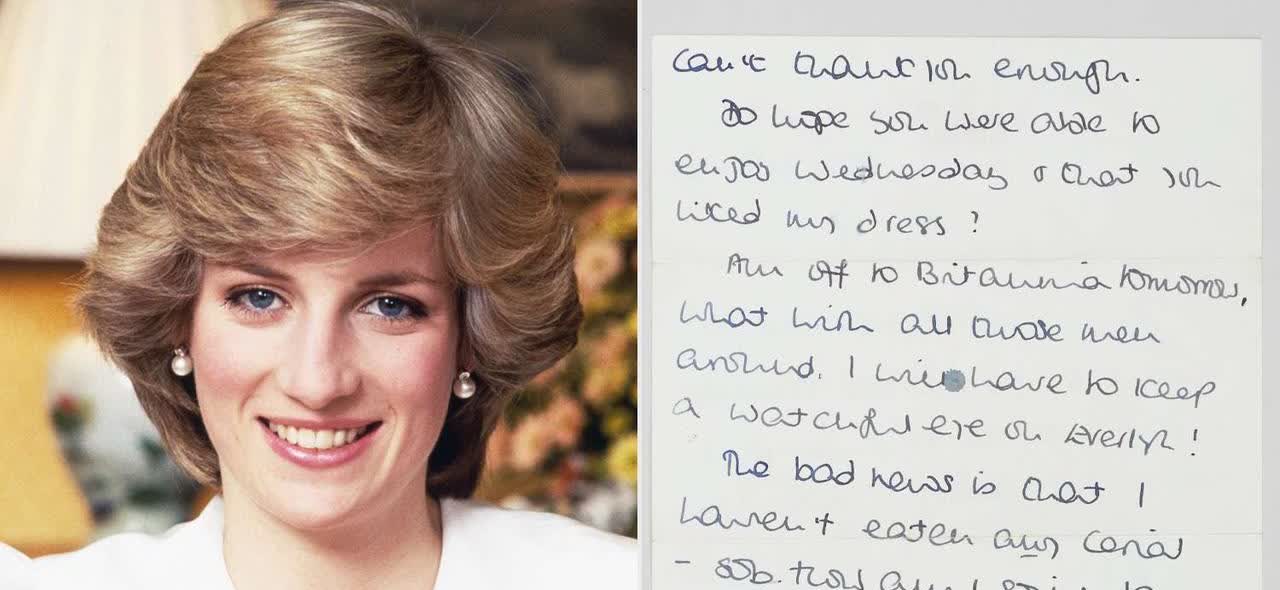 can't thank you enough.
Do hope you were able to
enjoy Wednesday & that you
liked my dress?
Am off to Britannia tomorrow,
what with all those men
around, I will have to keep
a watchful eye on Evelyn!
The bad news is that I
haven't eaten any cereal
- sob. How am I going to